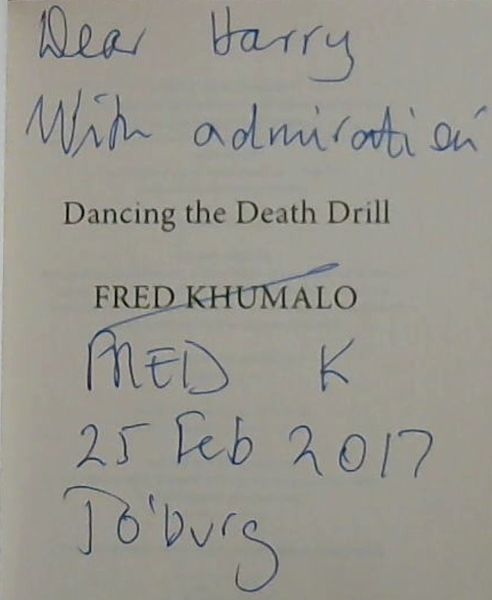 Dear Harry
With admiration
Dancing the Death Drill
FRED KHUMALO
FRED K
25 Feb 2017
Jo'burg